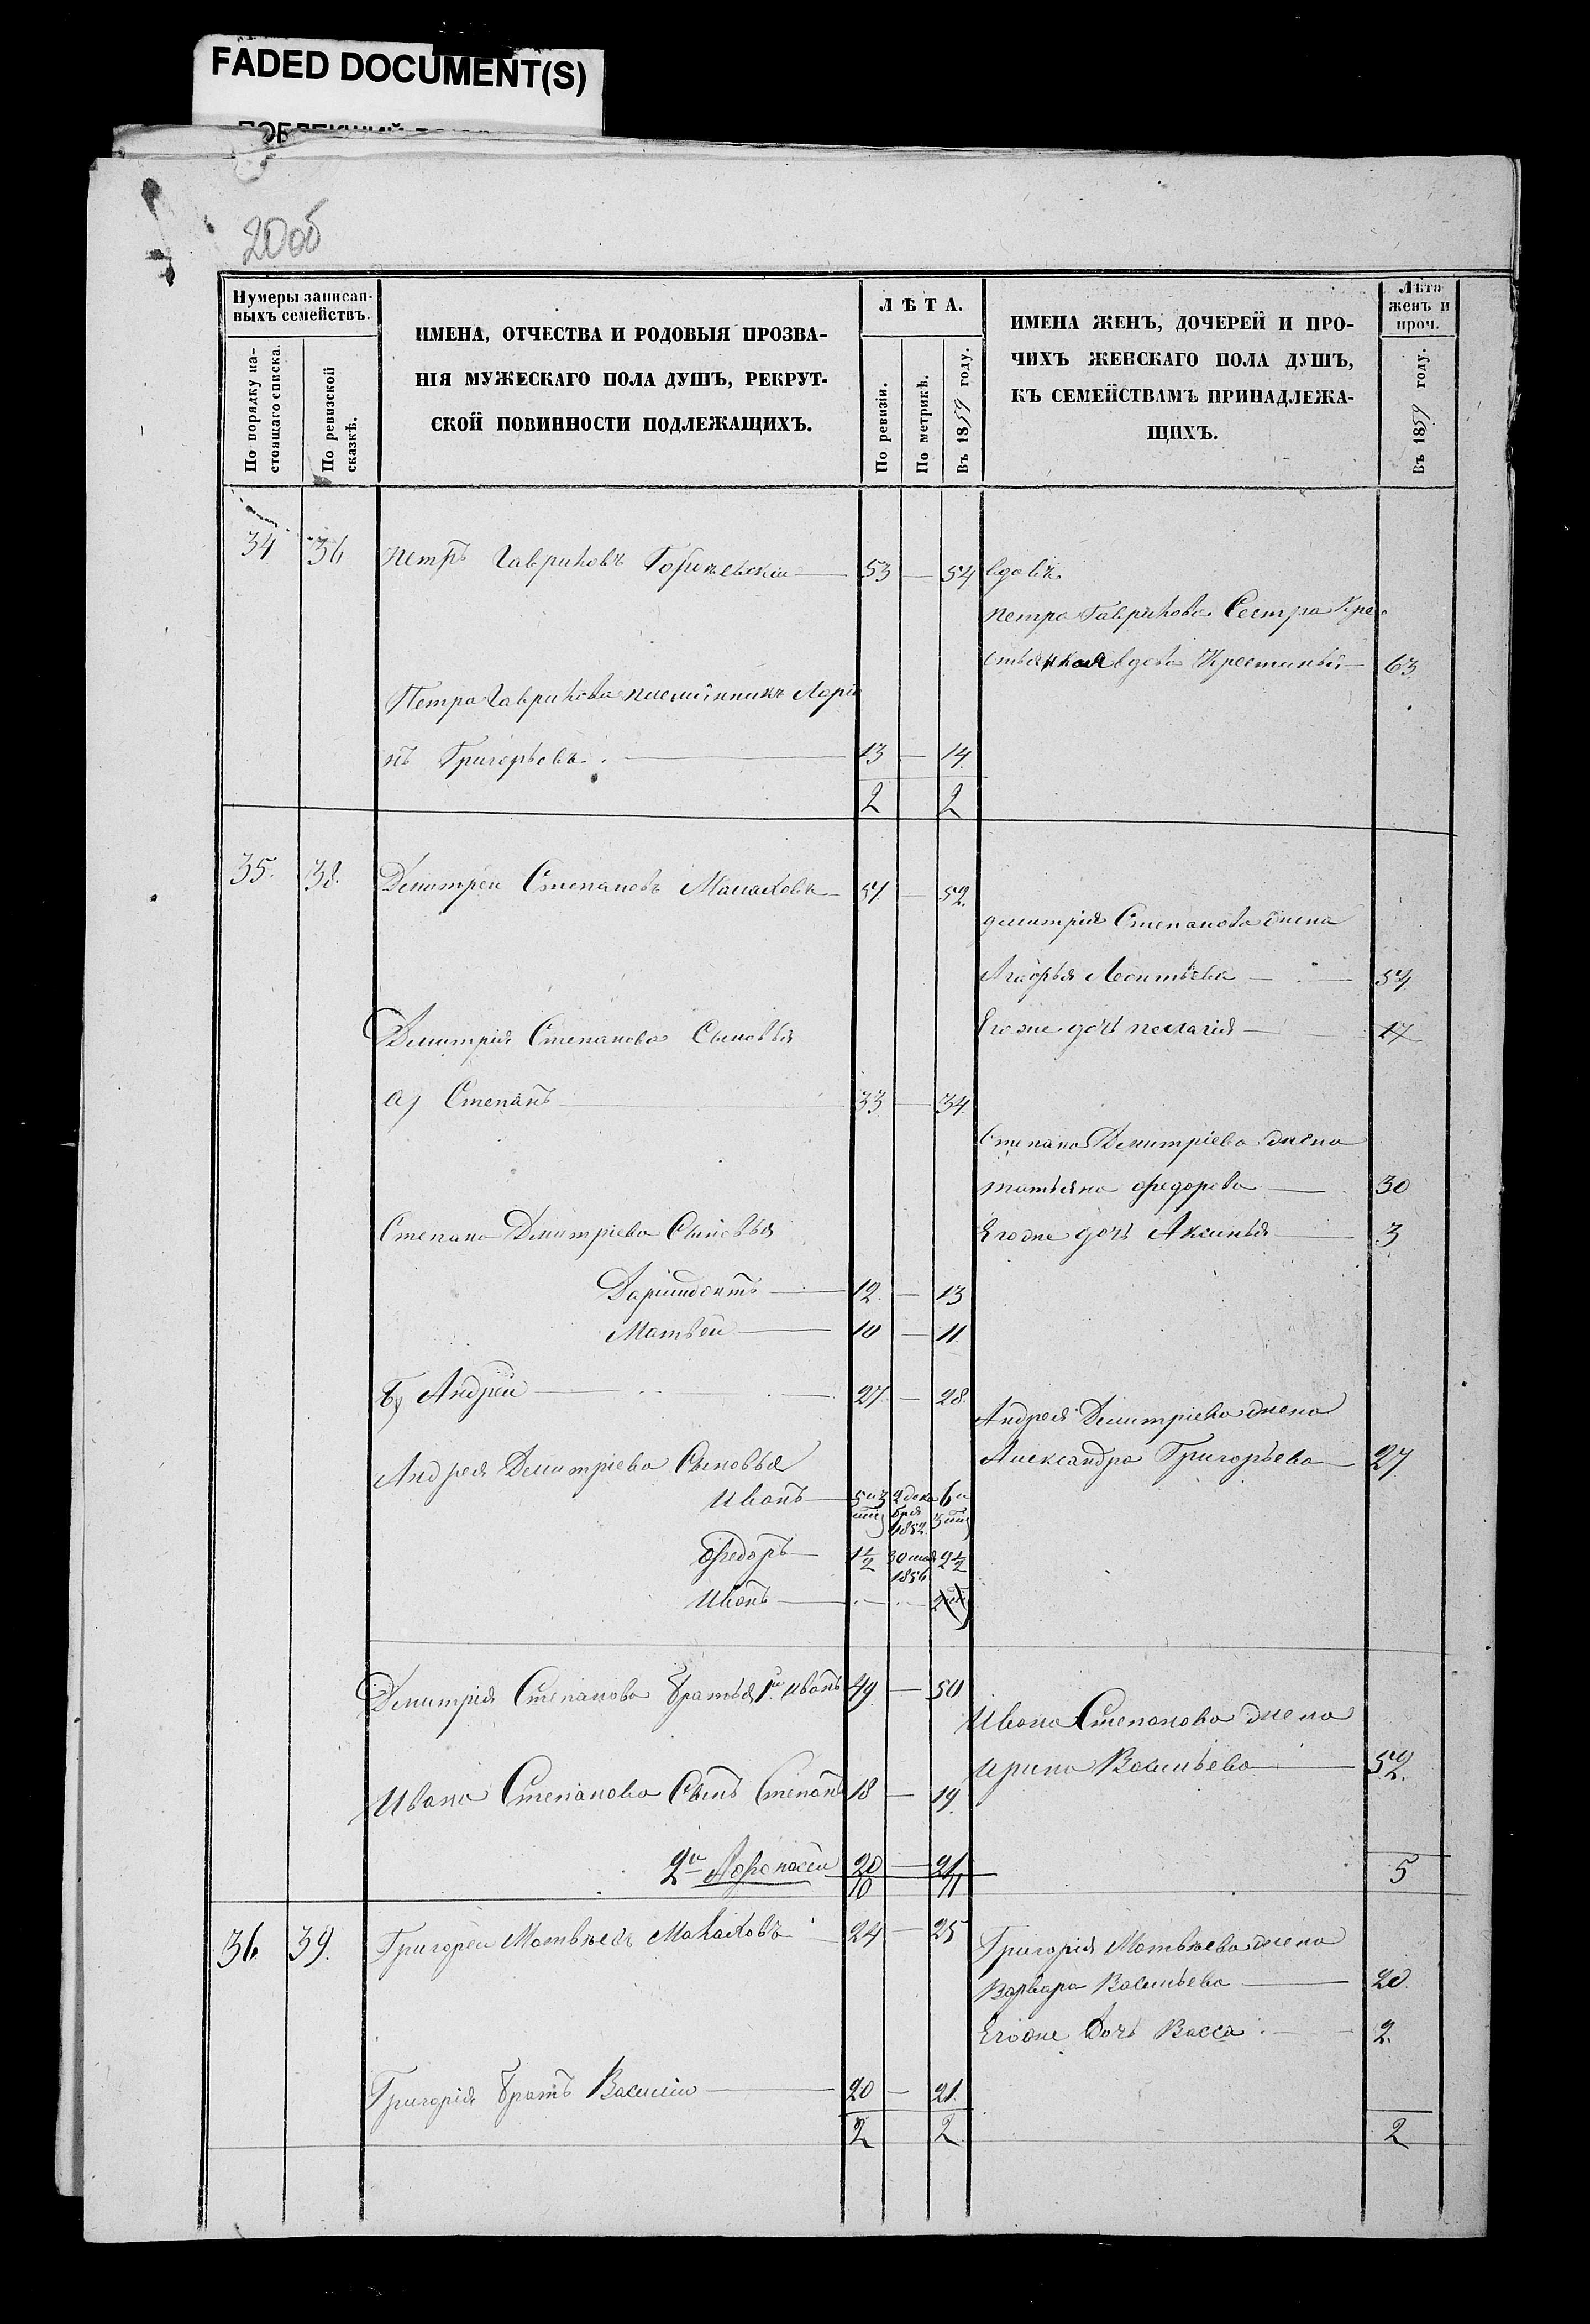 FADED DOCUMENT(S)
20об
Нумеры записан-
ныхъ семействъ.
По порядку на-
стоящаго списка.
По ревизской
сказкѣ.
ИМЕНА, ОТЧЕСТВА И РОДОВЫЯ ПРОЗВА-
НІЯ МУЖЕСКАГО ПОЛА ДУШЪ, РЕКРУТ-
СКОЙ ПОВИННОСТИ ПОДЛЕЖАЩИХЪ.
ЛѢТА.
По ревизіи.
По метрикѣ.
Въ 1859 году.
ИМЕНА ЖЕНЪ, ДОЧЕРЕЙ И ПРО-
ЧИХЪ ЖЕНСКАГО ПОЛА ДУШЪ,
КЪ СЕМЕЙСТВАМЪ ПРИНАДЛЕЖА-
ЩИХЪ.
Лѣта
женъ и
проч.
Въ 1859 году.
34 36 Петръ Гавриловъ 53 — 54 вдовъ
Петра Гаврилова Сестра Кре
стьянкая вдова 63
Петра Гаврилова племянникъ
нъ Григорьевъ. 13 — 14.
2 2
35. 38. Дмитрей Степановъ 51 — 52.
Дмитрія Степанова жена
Леонтьева — 54
Дмитрія Степанова Сыновья Его же дочь Пелагія — 17
а) Степанъ 33 — 34.
Степана Дмитріева жена
Татьяна Федорова — 30
Степана Дмитріева Сыновья Его же дочь Аксинья — 3
12 — 13
Матвей — 10 — 11
б) Андрей — 27 — 28.
Андрея Дмитріева жена
Александра Григорьева — 27
Андрея Дмитріева Сыновья
Иванъ — 5 и 3 2 дека 6 и
бря 3
1852
Федоръ — 1½ 30 мая 2½
1856
Иванъ —
Дмитрія Степанова братья 1й Иванъ 49 — 50
Ивана Степанова жена
Ирина Васильева — 52.
Ивана Степанова Сынъ Степанъ 18 — 19.
2й Афонасей 20 — 21
10 11 5
36. 39. Григорей Матвѣевъ 24 — 25
Григорія Матвѣева жена
Варвара Васильева — 20.
Его же дочь Васса — 2.
Григорія братъ Василій — 20 — 21.
2 2 2